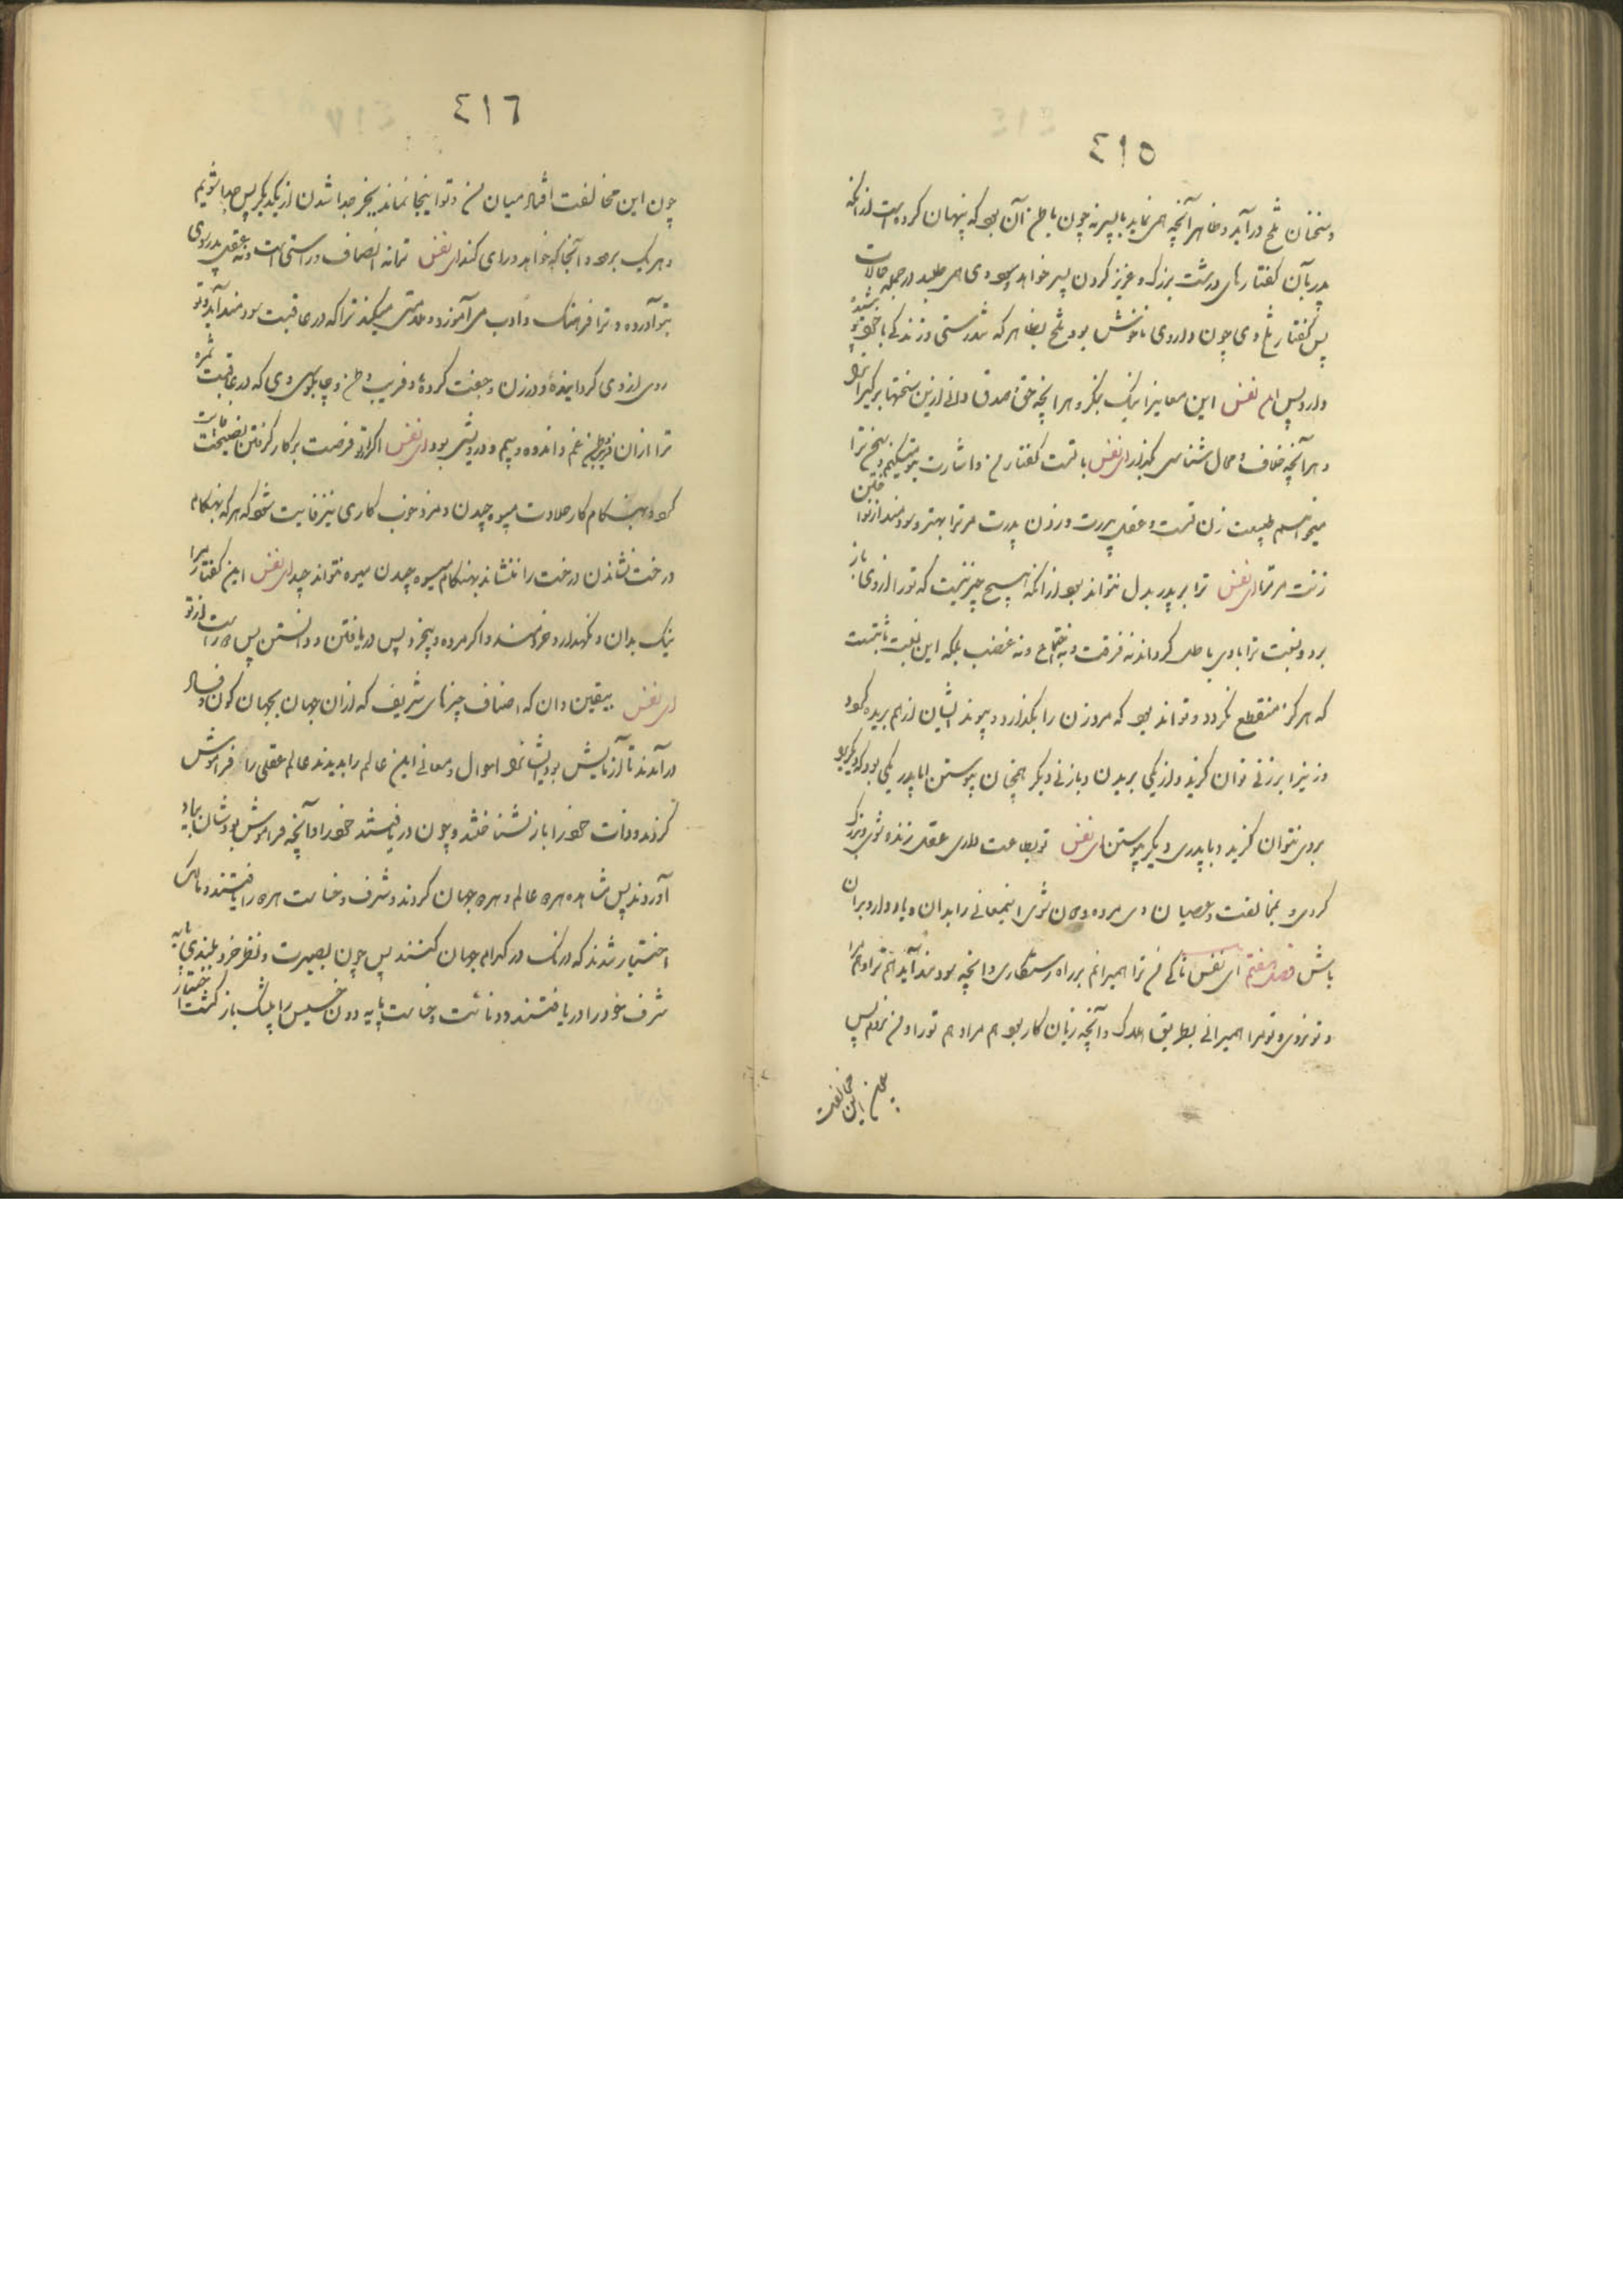 ٤١٥
و سخنان تلخ درآید و ظاهر آنچه همی نماید بالپسر نه چون باطن آن بود که پنهان کرده است از آنکه
پدر بآن گفتارهای درشت بزرگ و عزیز کردن پسر خواهد و بهی وی همی طلبد در جمله حالات
پس گفتار تلخ وی چون داروی ناخوش بود تلخ بظاهر که تندرستی و زندگی با خود
دارد پس ای نفس این معانیرا نیک بنگر و هر آنچه حق و صدق دانی ازین سخنها برگیر
و هر آنچه خلاف و محال شناسی بگذار ای نفس با تست گفتار من و اشارت بتو میکنم
میخواهم طبیعت زن تست و عقل پدرت و زدن پدرت مر ترا بهتر و سودمندتر از نواختن
زنت مر ترا ای نفس ترا بر پدر بدل نتواند بود از آنکه هیچ چیز نیست که تو را از وی باز
برد و نسبت ترا با وی باطل گرداند نه فرقت و نه اجتماع و نه غضب بلکه این نسبت ثابتست
که هرگز منقطع نگردد و تواند بود که مرد زن را بگذارد و پیوند ایشان از هم بریده گردد
و نیز ابر زنی توان گزید و از یکی بریدن و با زنی دیگر همچنان پیوستن اما پدر یکی بود که دیگری
بروی نتوان گزید و با پدری دیگر پیوستن ای نفس تو بطاعت داری عقل زنده شوی و بزرگ
گردی و بمخالفت و عصیان وی مرده و دون شوی اینمعانی را بدان و یاد دار و بر آن
باش فصل هفتم ای نفس تا کی من ترا همیرانم بر راه رستگاری و آنچه سودمند آید هم ترا و هم مرا
و تو نروی و تو مرا همیرانی بطریق هلاک و آنچه زیان کار بود هم مرا و هم تو را و من نروم پس
چون این مخالفت
٤١٦
چون این مخالفت افتاد میان من و تو اینجا نماند بجز جدا شدن از یکدیگر پس جدا شویم
و هر یک برود آنجا که خواهد و رای کند ای نفس ترا نه انصاف و راستی است و نه عقل پدر روی
بتو آورده و ترا فرهنگ و ادب می آموزد و میکند ترا که در عاقبت سودمند آید و تو
روی از وی گردانیده و در زن و جفت کرده و فریب و طنز و چاپلوسی وی که در عاقبت ثمره
ترا از آن غم و اندوه و بیم و درویشی بود ای نفس اگر ترا فرصت بر کار گرفتن نصیحت
گردد بهنگام کار حلاوت میوه چیدن و مزد خوب کاری نیز فایت شود که هر که بهنگام
درخت نشاندن درخت را ننشاند بهنگام میوه چیدن میوه نتواند چید ای نفس این گفتار مرا
نیک بدان و نگهدار و خردمند و اگر مرده و بیخرد پس دریافتن و دانستن پس دور است از تو
ای نفس بیقین دان که اصناف چیزهای شریف که از آن جهان بجهان کون و فساد
درآمدند تا آزمایش بود ایشانرا احوال و معانی این عالم را بدیدند عالم عقلی را فراموش
کردند و ذات خود را باز نشناختند و چون دریافتند خود را و آنچه فراموش بودشان بیاد
آوردند پس مشاهده هر دو عالم و هر دو جهان کردند و شرف و خساست هر دو را یافتند و مالک
اختیار شدند که درنگ در کدام جهان کنند پس چون بصیرت و نظر خرد بلندی پایه
شرف خود را دریافتند و دنائت و خساست پایه دون خسیس را پیش بازگشت اختیار